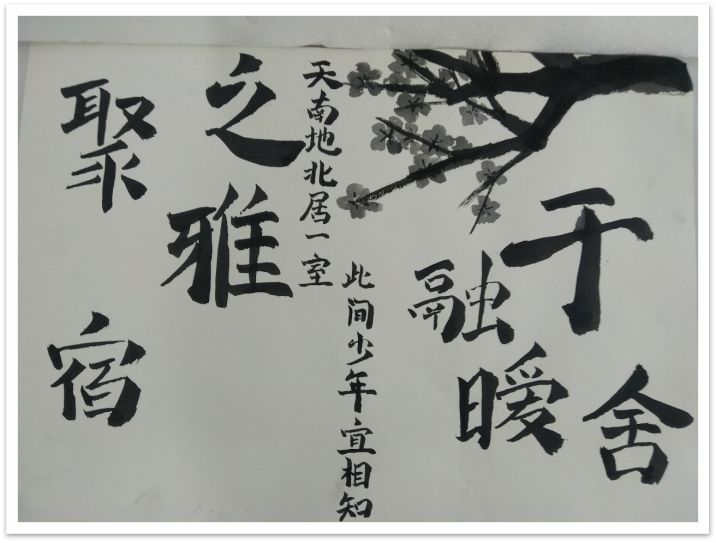 聚之雅宿
天南地北居一室
此间少年宜相知
融于暖舍